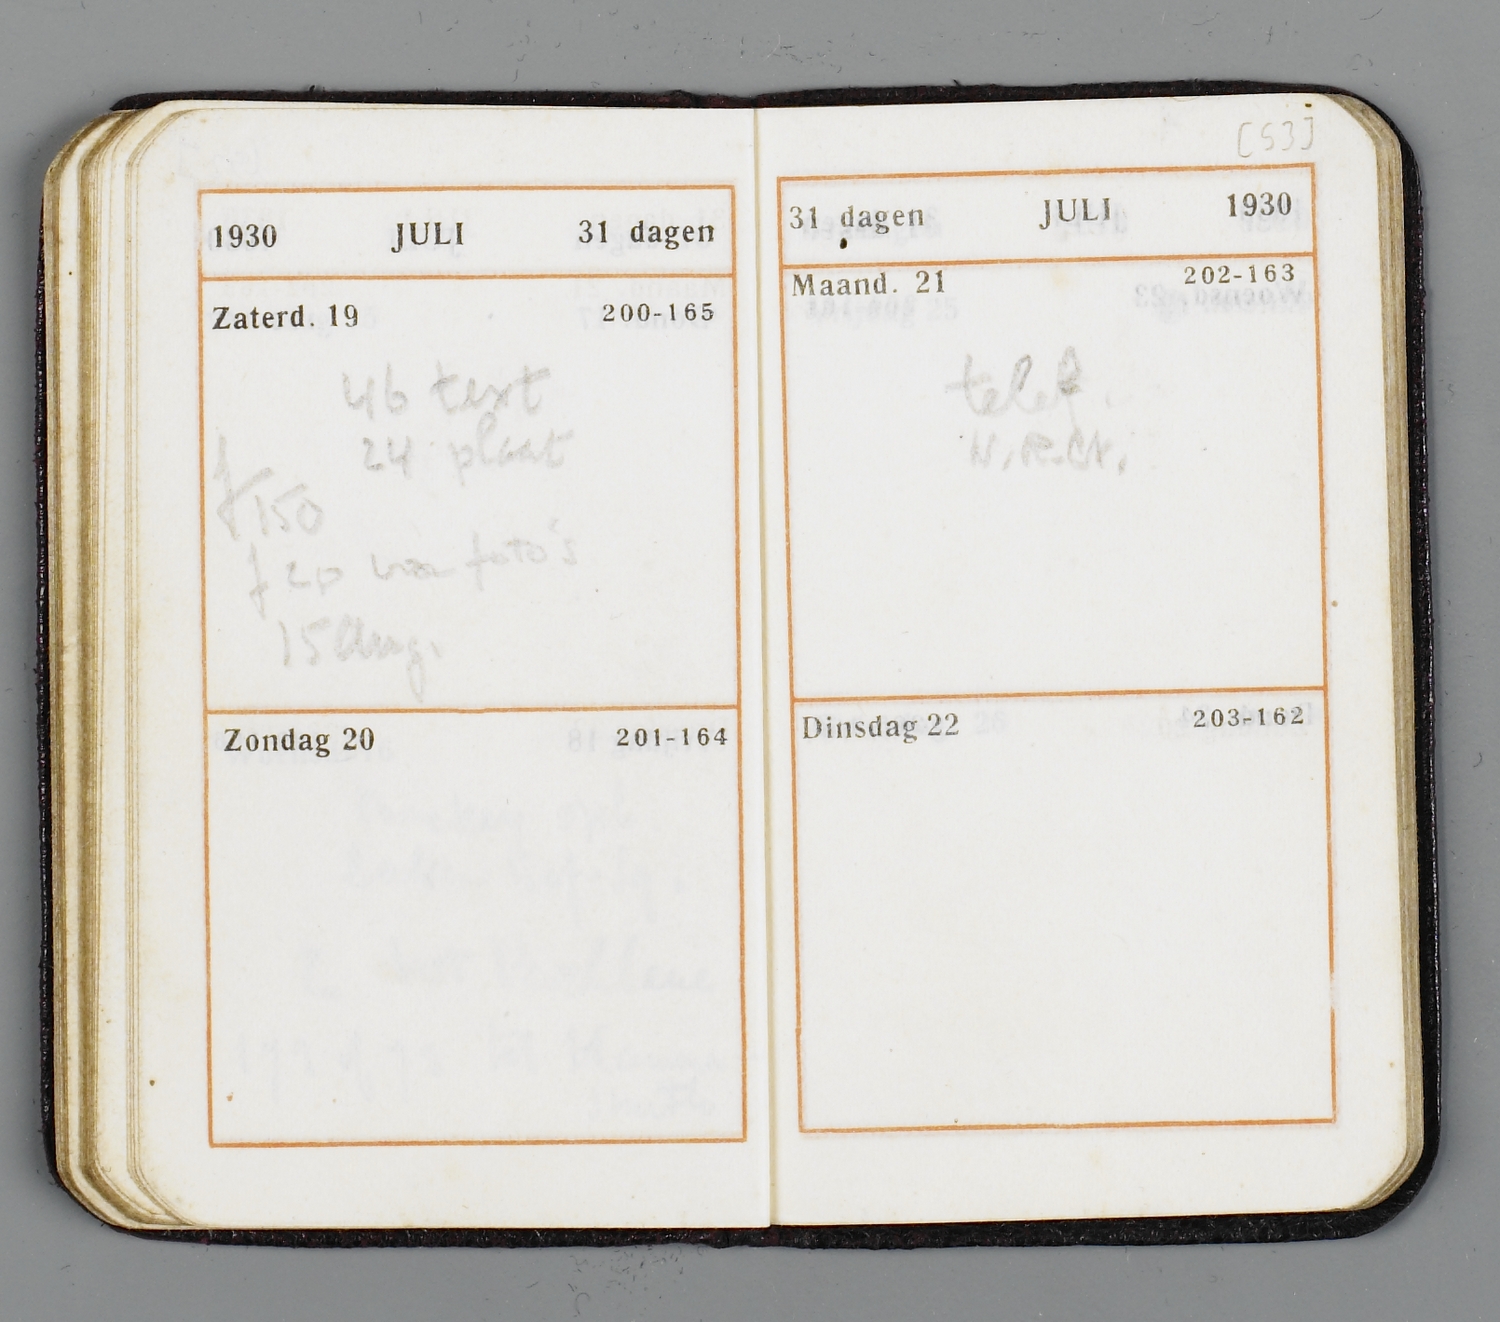 1930 JULI 31 dagen
Zaterd. 19 200-165
46 text
24 plaat
f 150
f foto's
15 Aug.
Zondag 20 201-164
[53]
31 dagen JULI 1930
Maand. 21 202-163
telef.
N.R.Ct.
Dinsdag 22 203-162